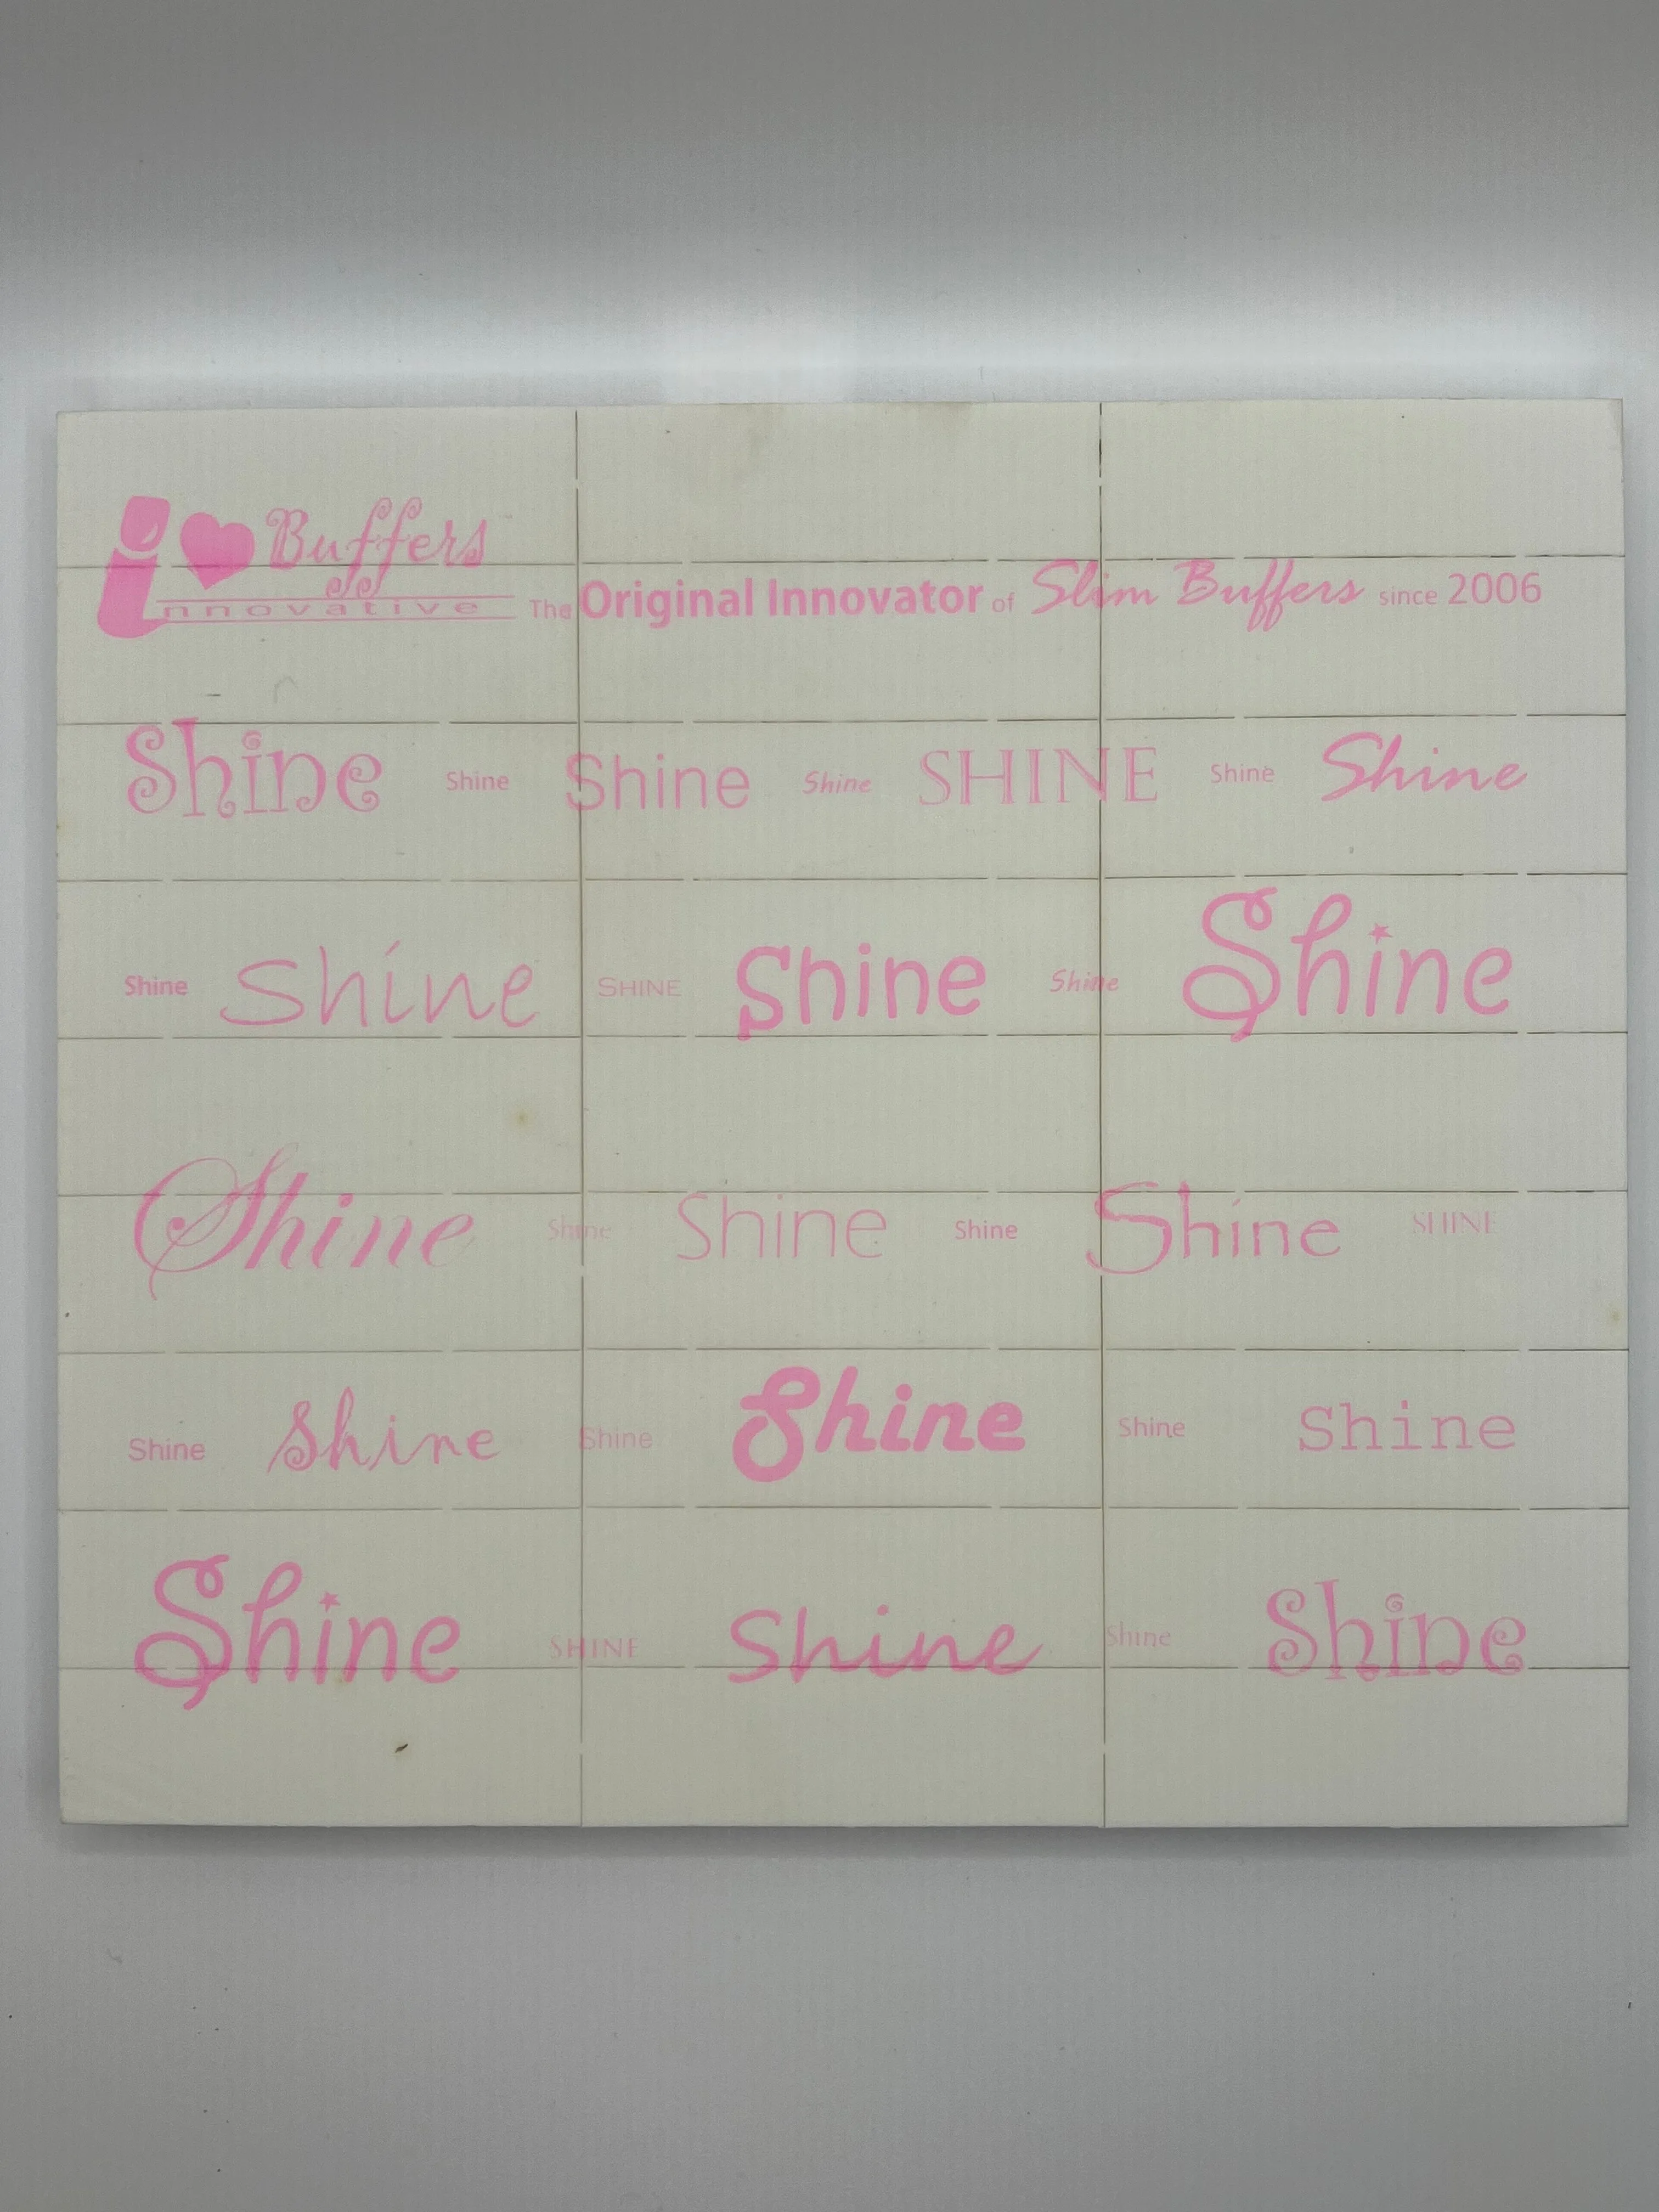 i ♥ Buffers
innovative The Original Innovator of Slim Buffers since 2006
Shine Shine Shine Shine SHINE Shine Shine
Shine Shine SHINE Shine Shine Shine
Shine Shine Shine Shine Shine SHINE
Shine Shine Shine Shine Shine Shine
Shine SHINE Shine Shine Shine